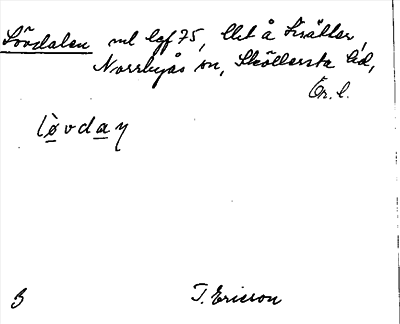 Lövdalen ml lgf 75, lht å Knäller,
Norrbyås sn, Sköllersta hd,
Ör. l.
lø̀vdaŋ
B T. Ericson